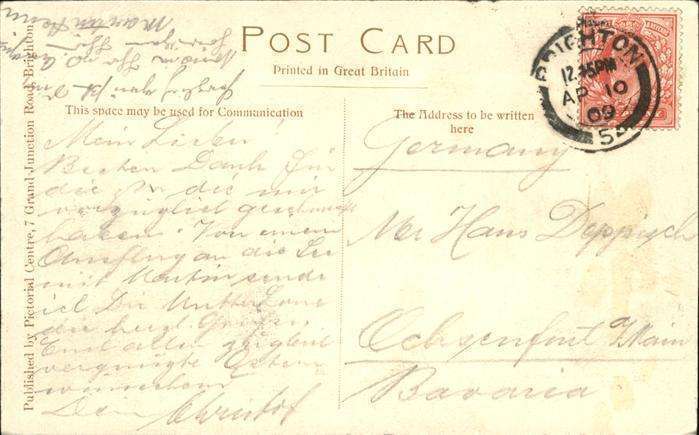 POST CARD
Printed in Great Britain
This space may be used for Communication
The Address to be written
here
Published by Pictorial Centre, 7 Grand Junction Road, Brighton
BRIGHTON
12.45PM
AP 10
09
54
Germany
Mr Hans Deppisch
Ochsenfurt a/Main
Bavaria
Mein Lieber!
Besten Dank für
die die mir
vorzüglich geschmeckt
haben. Von einem
Ausflug an die See
mit Martin sende
ich Dir Mutter
die herzl. Grüße,
Euch allen zugleich
vergnügte Ostern
wünschend
Dein Christof